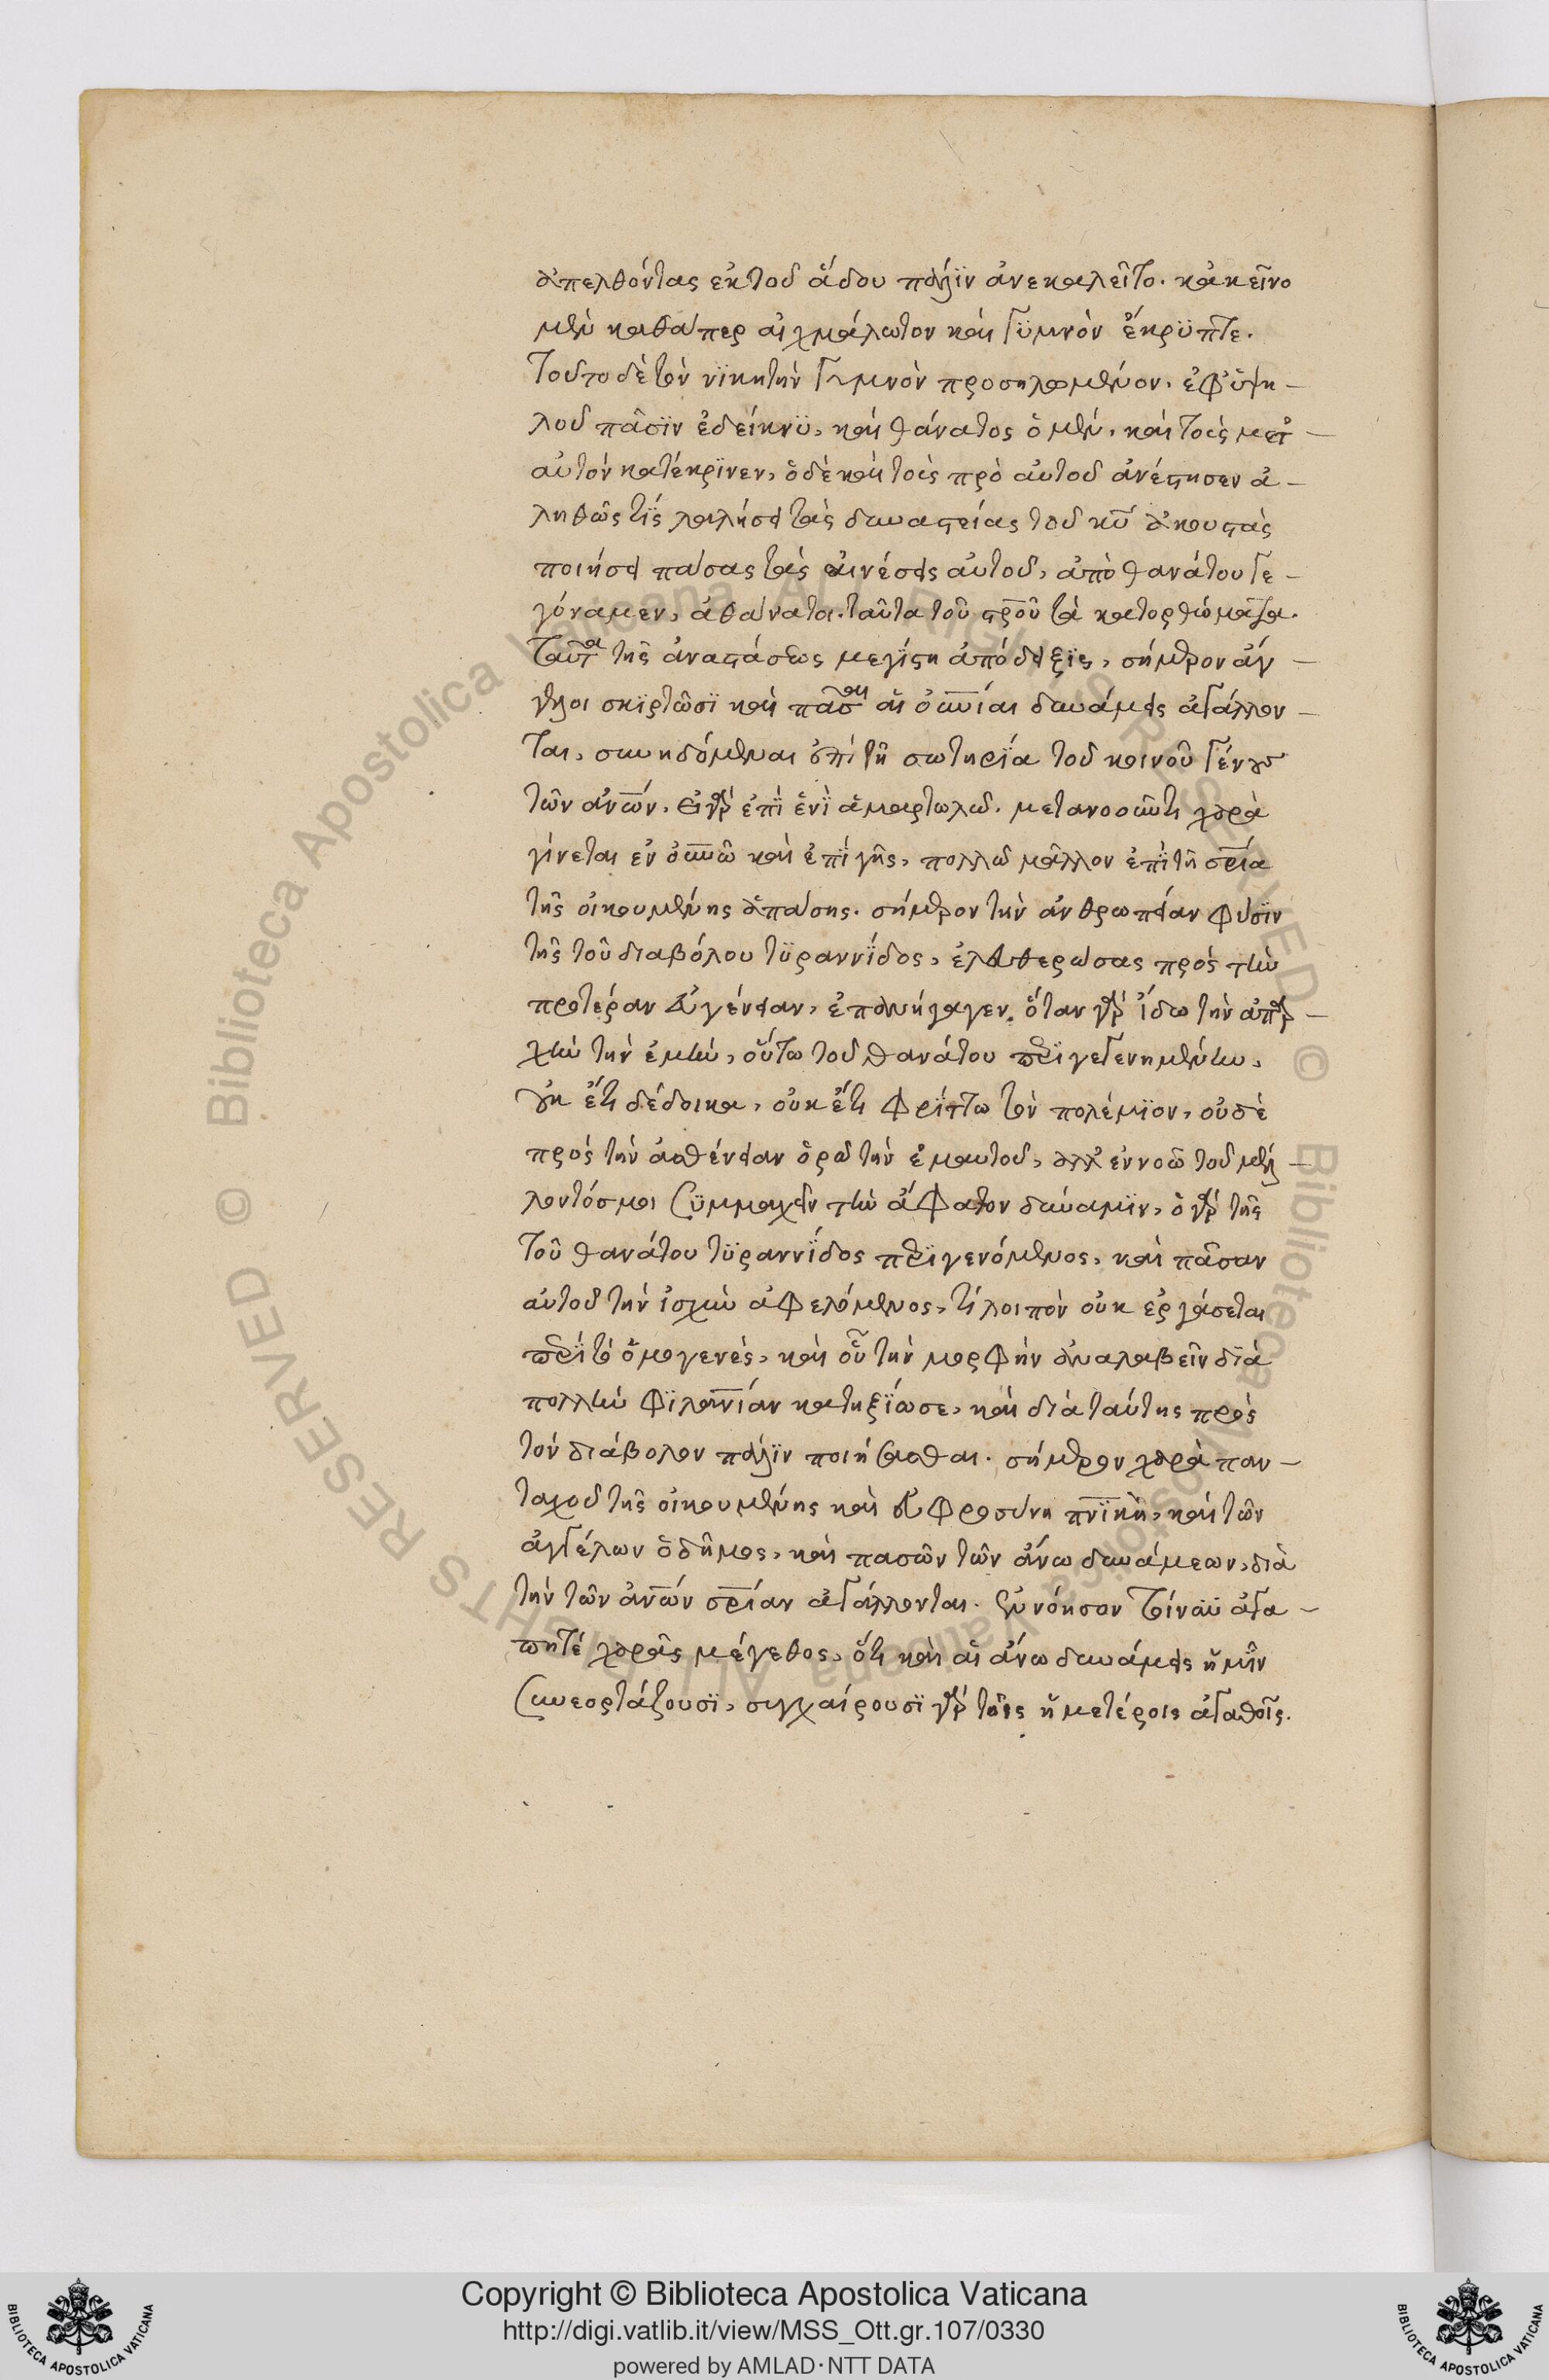 ἀπελθόντας ἐκ τοῦ ἅδου πάλϊν ἀνεκαλεῖτο. κἀκεῖνο
μὲν καθάπερ αἰχμάλωτον καὶ γϋμνὸν ἔκρϋπτε.
τοῦτο δὲ τὸν νϊκητὴν γυμνὸν προσηλομένον. ἐφ' ὑψη–
λοῦ πᾶσϊν ἐδείκνϋ, καὶ θάνατος ὁ μὲν. καὶ τοὺς μετ'–
αὐτὸν κατέκρϊνεν, ὁ δὲ καὶ τοὺς πρὸ αὐτοῦ ἀνέστησεν ἀ–
ληθῶς τίς λαλήσει τὰς δυναστείας τοῦ κ̅υ̅ ἀκουστὰς
ποιήσει πάσας τὰς αἰνέσεις αὐτοῦ, ἀπὸ θανάτου γε–
γόναμεν, ἀθάνατοι. ταῦτα τοῦ σ̅ρ̅ο̅ῦ τὰ κατορθώματα.
ταῦτα τῆς ἀναστάσεως μεγίστη ἀπόδειξϊς, σήμερον ἄγ–
γελοι σκϊρτῶσϊ καὶ πᾶσαι αἱ ο̅υ̅ν̅ιαι δυνάμεις ἀγάλλον–
ται, συνηδόμεναι ἐπὶ τῆ σωτηρΐα τοῦ κοινοῦ γένους
τῶν ἀν̅ων. εἰ γὰρ ἐπΐ ἑνΐ ἁμαρτωλῶ. μετανοοῦντι χαρὰ
γίνεται ἐν ο̅υ̅ν̅ῶ καὶ ἐπΐ γῆς, πολλῶ μᾶλλον ἐπΐ τῆ σ̅ρ̅ία
τῆς οἰκουμένης ἁπάσης. σήμερον τὴν ἀνθρωπείαν φύσϊν
τῆς τοῦ διαβόλου τϋραννΐδος, ἐλευθερώσας πρὸς τὴν
προτέραν εὐγένειαν, ἐπανήγαγεν. ὅταν γὰρ ἴδω τὴν ἀπαρ–
χὴν τὴν ἐμὴν, οὕτω τοῦ θανάτου περϊγεγενημένην,
οὐκ ἔτι δέδοικα, οὐκ ἔτι φρΐττω τὸν πολέμϊον, οὐδὲ
πρὸς τὴν ἀσθένειαν ὁρῶ τὴν ἐμαυτοῦ, ἀλλ' ἐννοῶ τοῦ μέλ–
λοντός μοι συμμαχεῖν τὴν ἄφατον δύναμϊν, ὁ γὰρ τῆς
τοῦ θανάτου τϋραννΐδος περϊγενόμενος, καὶ πᾶσαν
αὐτοῦ τὴν ἰσχὺν ἀφελόμενος, τί λοιπὸν οὐκ ἐργάσεται
περΐ τὸ ὁμογενὲς, καὶ οὗ τὴν μορφὴν ἀναλαβεῖν διὰ
πολλὴν φϊλα̅ν̅ίαν κατηξΐωσε, καὶ διὰ ταύτης πρὸς
τὸν διάβολον πάλϊν ποιήσασθαι. σήμερον χαρὰ παν–
ταχοῦ τῆς οἰκουμένης καὶ εὐφροσύνη π̅ν̅ϊκὴ, καὶ τῶν
ἀγγέλων ὁ δῆμος, καὶ πασῶν τῶν ἄνω δυνάμεων, διὰ
τὴν τῶν ἀν̅ων σ̅ρ̅ίαν ἀγάλλονται. ἐννόησον τοίνϋν ἀγα–
πητὲ χαρᾶς μέγεθος, ὅτι καὶ αἱ ἄνω δυνάμεις ἡμῖν
συνεορτάζουσϊ, συγχαίρουσϊ γὰρ τοῖς ἡμετέροις ἀγαθοῖς.
Copyright © Biblioteca Apostolica Vaticana
http://digi.vatlib.it/view/MSS_Ott.gr.107/0330
powered by AMLAD·NTT DATA